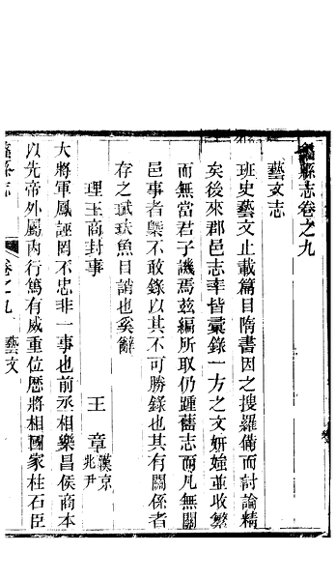 蠡縣志卷之九
藝文志
班史藝文止載篇目隋書因之搜羅備而討論精
矣後來郡邑志率皆彙錄一方之文妍媸並收繁
而無當君子譏焉茲編所取仍踵舊志而凡無關
邑事者槩不敢錄以其不可勝錄也其有關係者
存之珷玞魚目誚也奚辭
理王商封事 王章漢京兆尹
大將軍鳳誣罔不忠非一事也前丞相樂昌侯商本
以先帝外屬內行篤有威重位歷將相國家柱石臣
卷之九 藝文